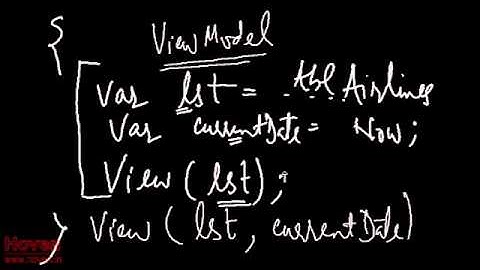 {
ViewModel
Var lst = tblAirlines
Var currentDate = Now;
View (lst);
} View (lst, currentDate)